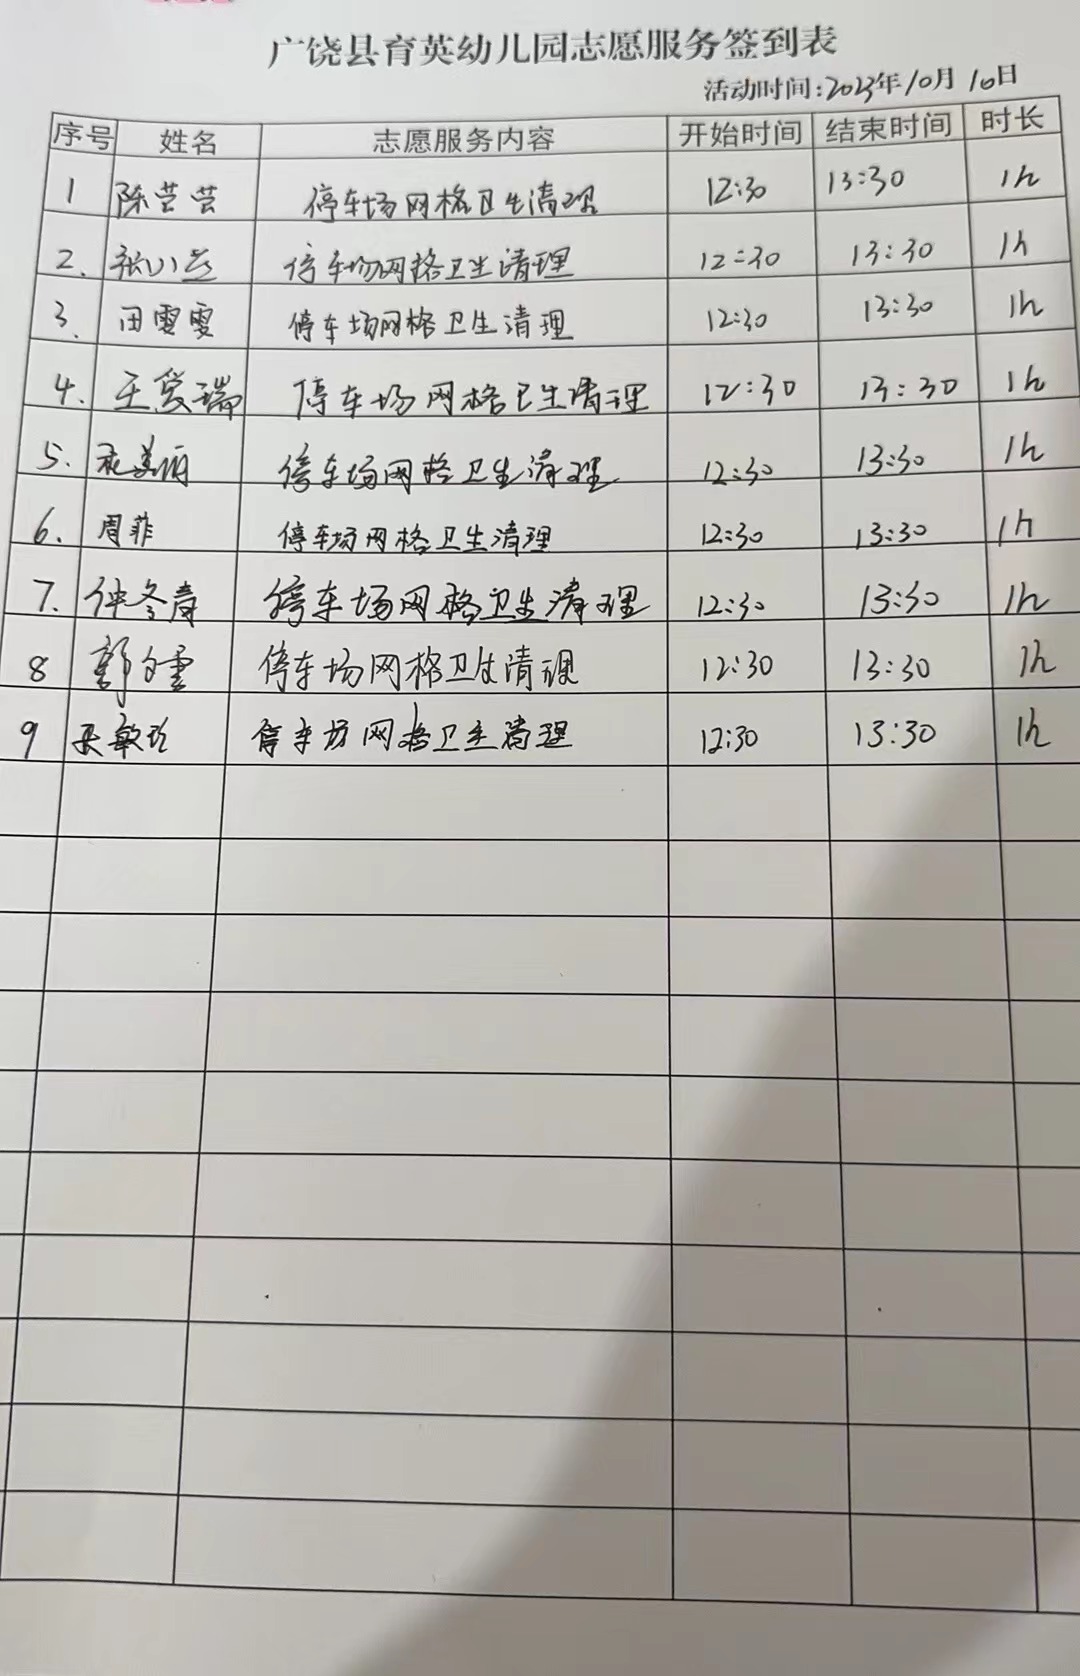 广饶县育英幼儿园志愿服务签到表
活动时间:2023年10月10日
序号 姓名 志愿服务内容 开始时间 结束时间 时长
1 陈芸芸 停车场网格卫生清理 12:30 13:30 1h
2. 张 停车场网格卫生清理 12:30 13:30 1h
3. 田雯雯 停车场网格卫生清理 12:30 13:30 1h
4. 王瑞 停车场网格卫生清理 12:30 13:30 1h
5. 美丽 停车场网格卫生清理 12:30 13:30 1h
6. 周菲 停车场网格卫生清理 12:30 13:30 1h
7. 仲冬青 停车场网格卫生清理 12:30 13:30 1h
8 郭 停车场网格卫生清理 12:30 13:30 1h
9 敏 停车场网格卫生清理 12:30 13:30 1h